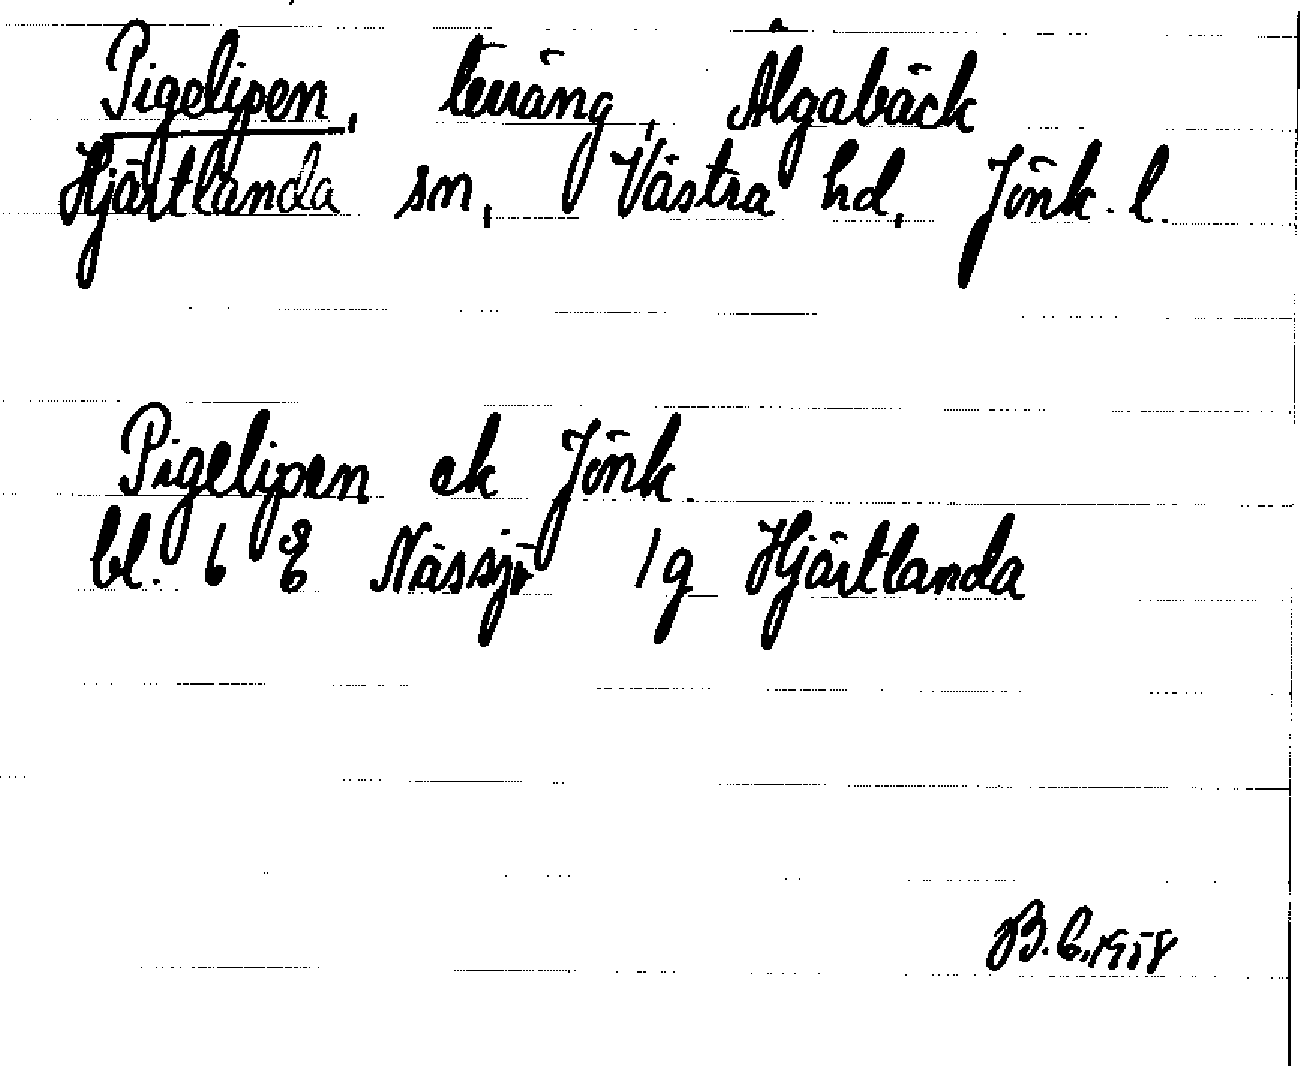 Pigelipen, terräng, Älgabäck
Hjärtlanda sn, Västra hd, Jönk. l.
Pigelipen ek Jönk.
bl. 6 Nässjö 1g Hjärtlanda
B.G.1958